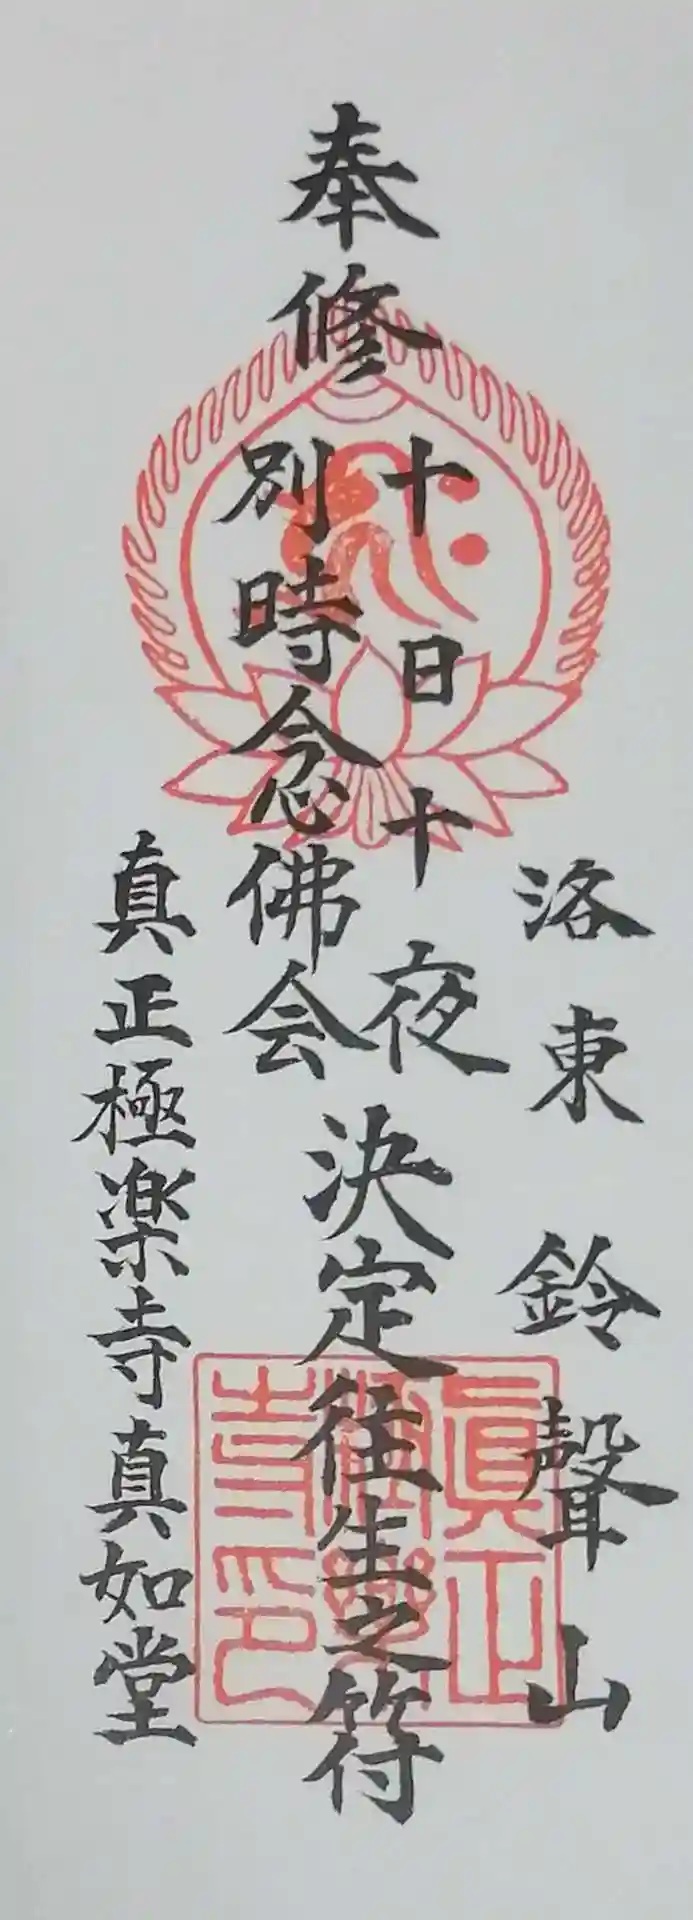 洛東 鈴聲山
奉修
十日十夜
別時念佛会
決定往生之符
真正極楽寺真如堂
眞正極樂寺印